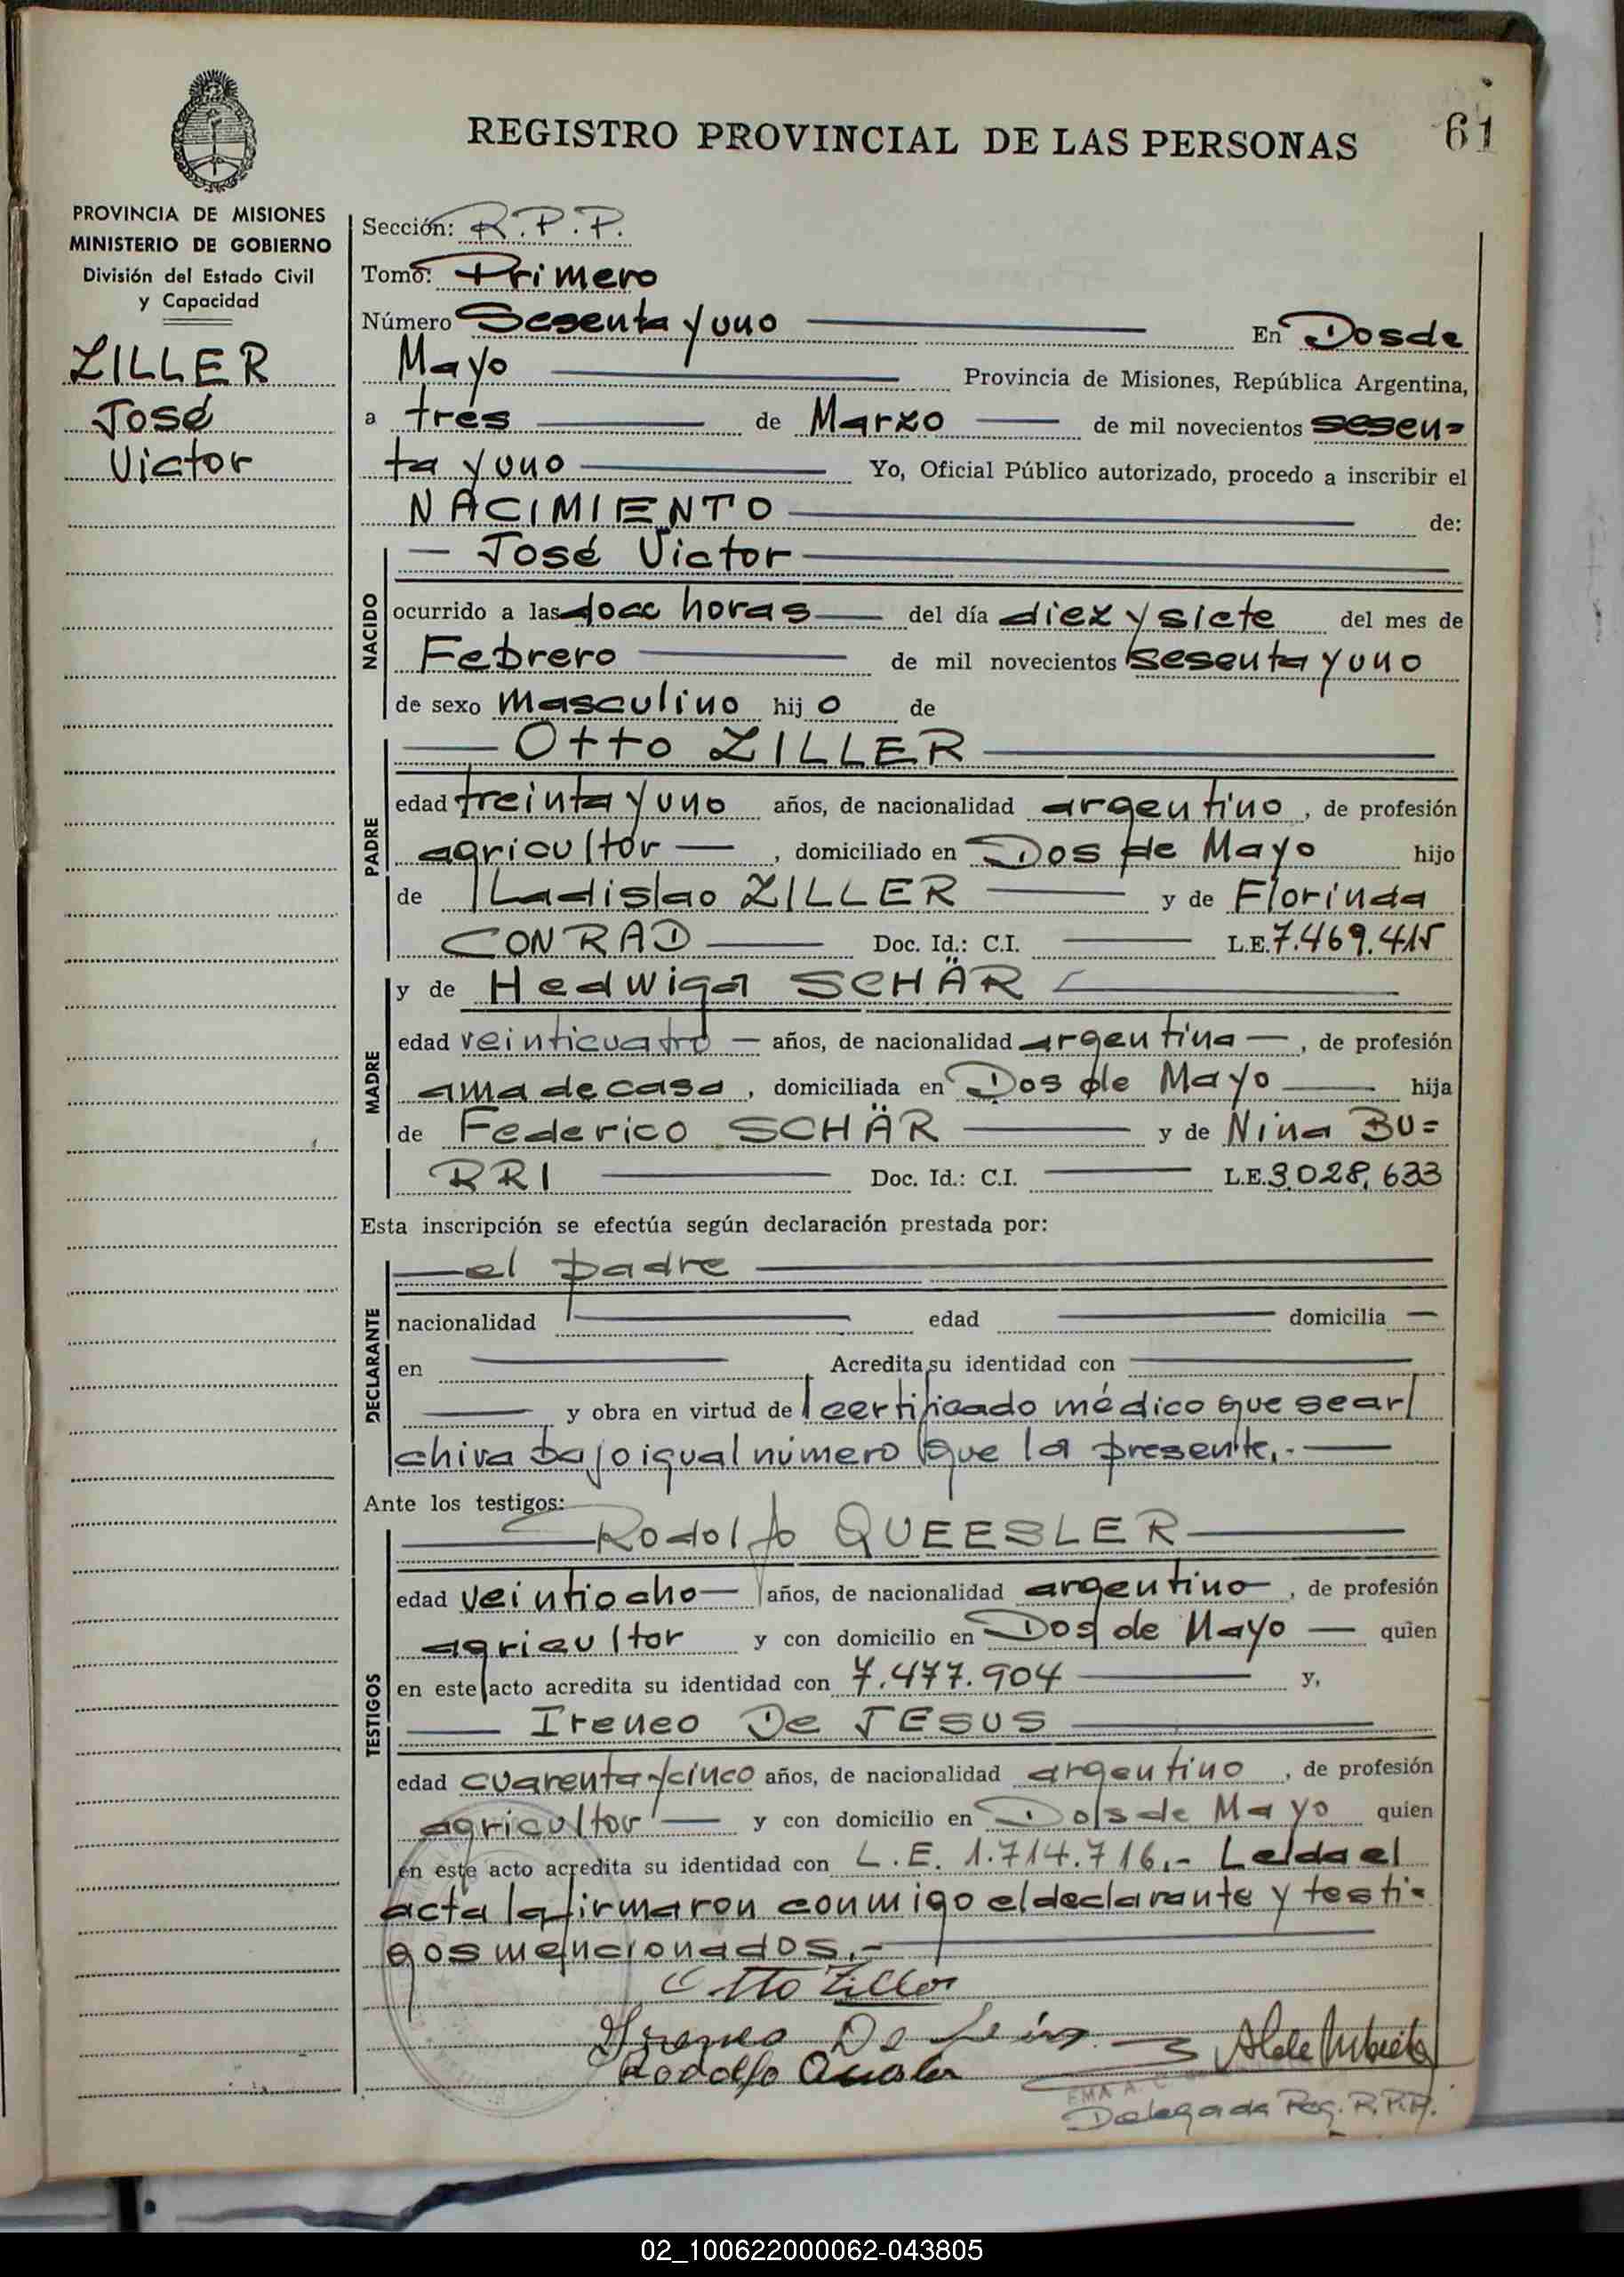 REGISTRO PROVINCIAL DE LAS PERSONAS 61
PROVINCIA DE MISIONES
MINISTERIO DE GOBIERNO
División del Estado Civil
y Capacidad
ZILLER
José
Victor
Sección: R.P.P.
Tomo: Primero
Número Sesenta y uno En Dos de
Mayo Provincia de Misiones, República Argentina,
a tres de Marzo de mil novecientos sesen=
ta y uno Yo, Oficial Público autorizado, procedo a inscribir el
NACIMIENTO de:
José Victor
NACIDO
ocurrido a las doce horas del día diez y siete del mes de
Febrero de mil novecientos sesenta y uno
de sexo masculino hijo de
Otto ZILLER
PADRE
edad treinta y uno años, de nacionalidad argentino, de profesión
agricultor, domiciliado en Dos de Mayo hijo
de Ladislao ZILLER y de Florinda
CONRAD Doc. Id.: C.I. L.E. 7.469.415
y de Hedwiga SCHÄR
MADRE
edad veinticuatro años, de nacionalidad argentina, de profesión
ama de casa, domiciliada en Dos de Mayo hija
de Federico SCHÄR y de Nina BU=
RRI Doc. Id.: C.I. L.E. 3.028,633
Esta inscripción se efectúa según declaración prestada por:
el padre
DECLARANTE
nacionalidad edad domicilia
en Acredita su identidad con
y obra en virtud de certificado médico que se ar
chiva bajo igual número que la presente.-
Ante los testigos:
Rodolfo QUEESLER
TESTIGOS
edad veintiocho años, de nacionalidad argentino, de profesión
agricultor y con domicilio en Dos de Mayo quien
en este acto acredita su identidad con 7.477.904 y,
Ireneo De JESUS
edad cuarenta y cinco años, de nacionalidad argentino, de profesión
agricultor y con domicilio en Dos de Mayo quien
en este acto acredita su identidad con L.E. 1.714.716.- Leída el
acta la firmaron conmigo el declarante y testi=
gos mencionados.-
Otto Ziller
Ireneo De
Rodolfo
Delegada Reg. R.P.P.
02_100622000062-043805